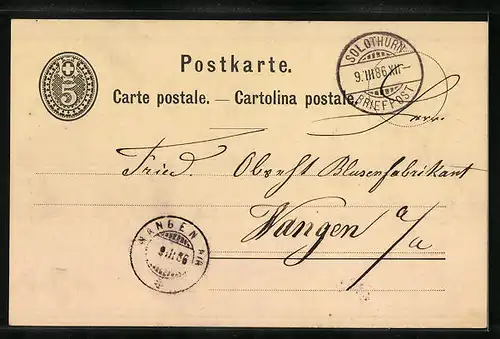 5
Postkarte.
Carte postale. — Cartolina postale.
SOLOTHURN
9.III.86.XII—
BRIEFPOST
Herr
Fried. Obrecht Blusenfabrikant
Wangen a/a
WANGEN A/A
9.III.86